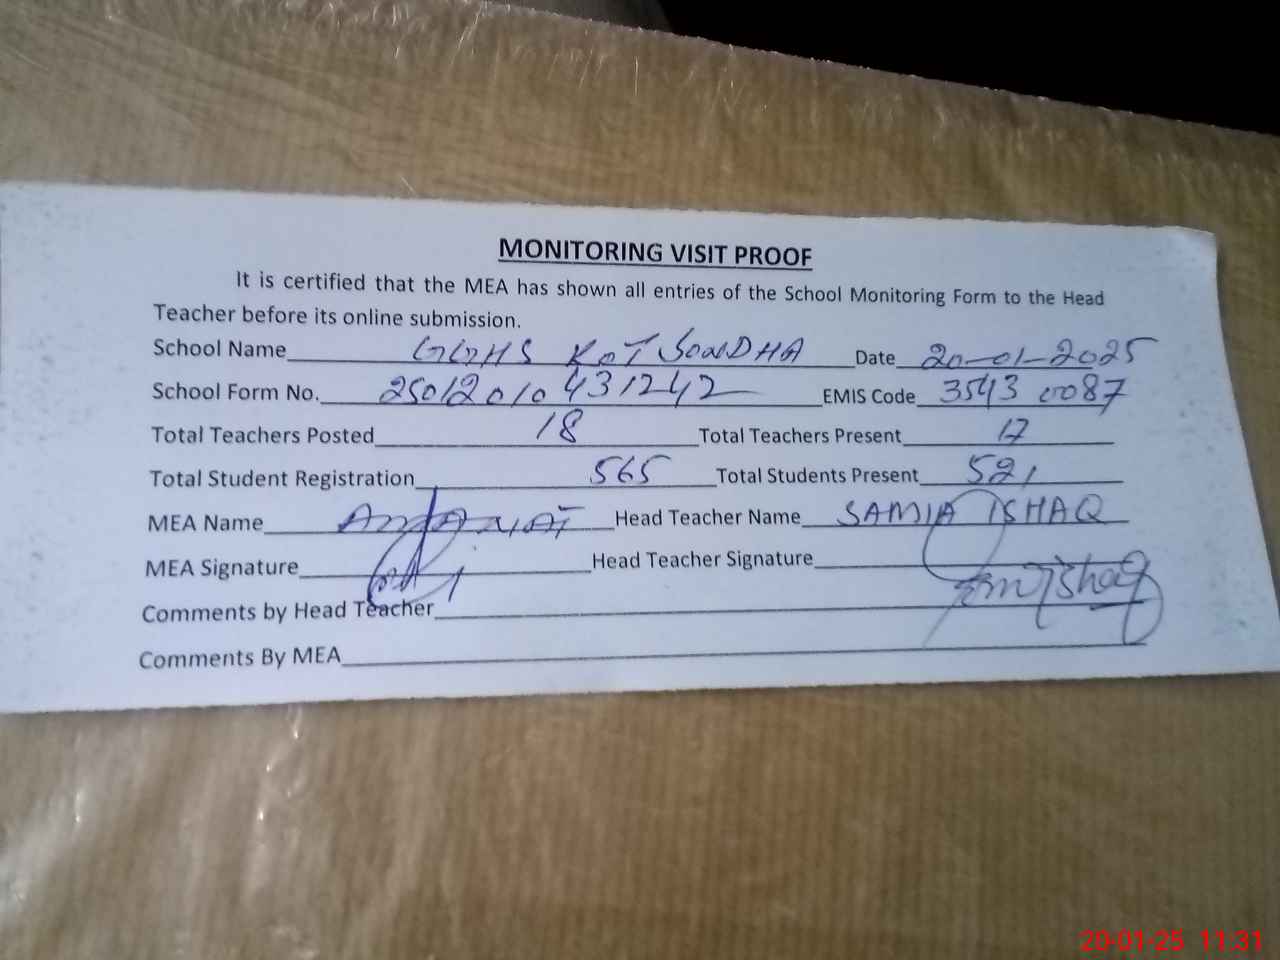 MONITORING VISIT PROOF
It is certified that the MEA has shown all entries of the School Monitoring Form to the Head
Teacher before its online submission.
School Name GGHS KOT SONDHA Date 20-01-2025
School Form No. 25012010431242 EMIS Code 35430087
Total Teachers Posted 18 Total Teachers Present 17
Total Student Registration 565 Total Students Present 521
MEA Name Head Teacher Name SAMIA ISHAQ
MEA Signature Head Teacher Signature
Comments by Head Teacher
Comments By MEA
20-01-25 11:31